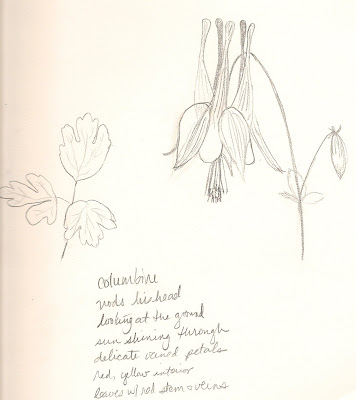 columbine
nods his head
looking at the ground
sun shining through
delicate veined petals
red, yellow interior
leaves w/ red stem + veins